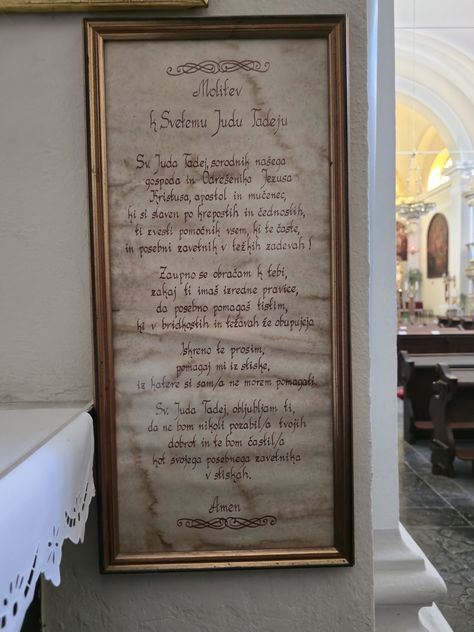 Molitev
k Svetemu Judu Tadeju
Sv. Juda Tadej, sorodnik našega
gospoda in Odrešenika Jezusa
Kristusa, apostol in mučenec,
ki si slaven po krepostih in čednostih,
ti zvesti pomočnik vsem, ki te časte,
in posebni zavetnik v težkih zadevah!
Zaupno se obračam k tebi,
zakaj ti imaš izredne pravice,
da posebno pomagaš tistim,
ki v bridkostih in težavah že obupujejo
Iskreno te prosim,
pomagaj mi iz stiske,
iz katere si sam/a ne morem pomagati.
Sv. Juda Tadej, obljubljam ti,
da ne bom nikoli pozabil/a tvojih
dobrot in te bom častil/a
kot svojega posebnega zavetnika
v stiskah.
Amen